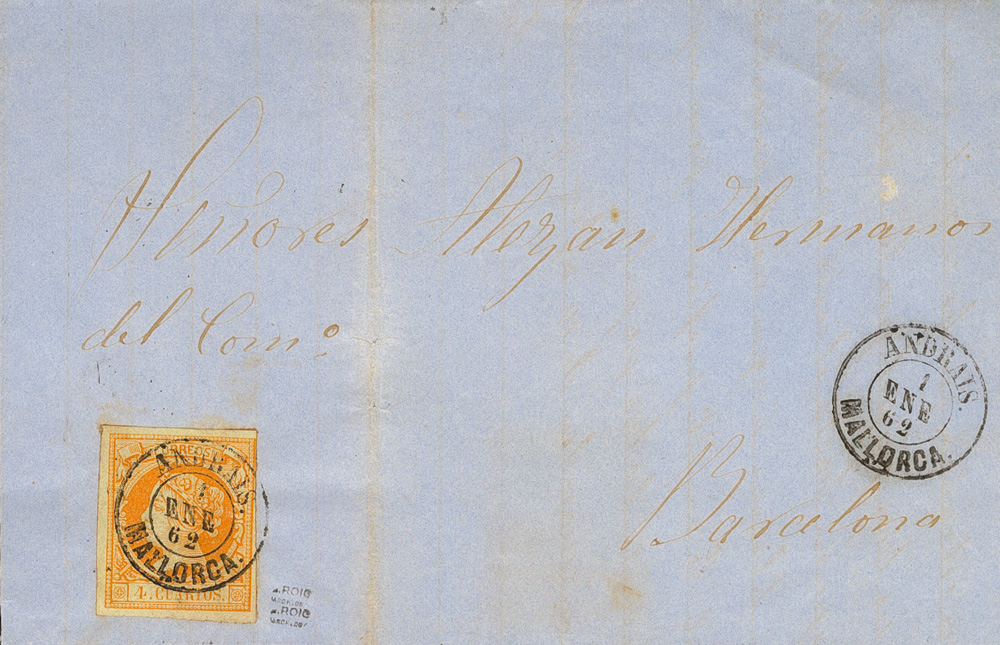 Señores Alezan Hermanos
del Comº
Barcelona
ANDRAIS.
1
ENE
62
MALLORCA.
CORREOS
ANDRAIS.
1
ENE
62
MALLORCA.
4. CUARTOS.
A.ROIG
A.ROIG